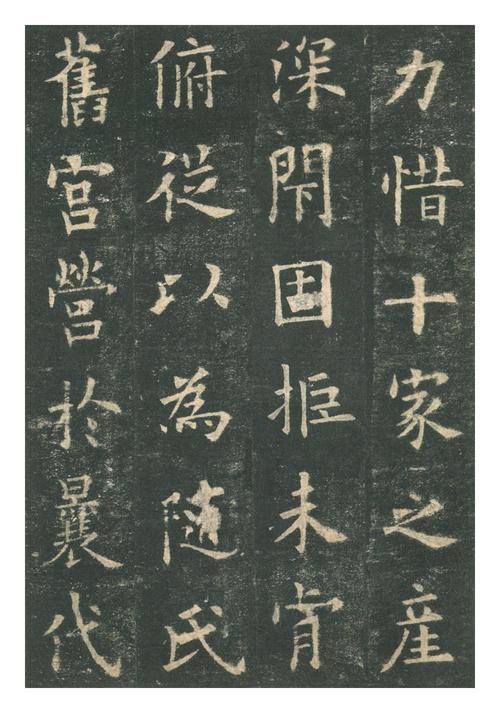 力惜十家之產
深閇固拒未肎
俯從以為隨氏
舊宮營於曩代